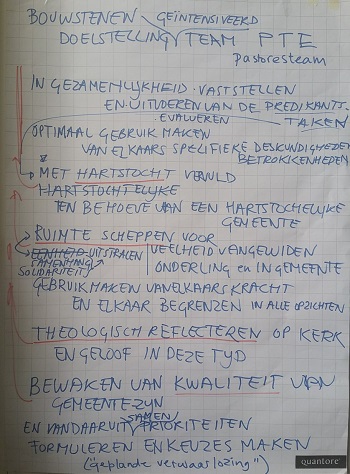 BOUWSTENEN GEÏNTENSIVEERD
DOELSTELLING TEAM PTE
pastoresteam
IN GEZAMENLIJKHEID VASTSTELLEN
EN UITVOEREN VAN DE PREDIKANTS-
EVALUEREN TAKEN
OPTIMAAL GEBRUIK MAKEN
VAN ELKAARS SPECIFIEKE DESKUNDIGHEDEN
& BETROKKENHEDEN
MET HARTSTOCHT VERVULD
HARTSTOCHTELIJKE
TEN BEHOEVE VAN EEN HARTSTOCHELYKE
GEMEENTE
RUIMTE SCHEPPEN VOOR
EENHEID UITSTRALEN VEELHEID VAN GELUIDEN
SAMENHANG
SOLIDARITEIT ONDERLING en IN GEMEENTE
GEBRUIKMAKEN VAN ELKAARS KRACHT
EN ELKAAR BEGRENZEN IN ALLE OPZICHTEN
THEOLOGISCH REFLECTEREN OP KERK
EN GELOOF IN DEZE TIJD
BEWAKEN VAN KWALITEIT VAN
GEMEENTEZYN
SAMEN
EN VANDAARUIT PRIORITEITEN
FORMULEREN EN KEUZES MAKEN
("geplande verwaarlozing")
quantore